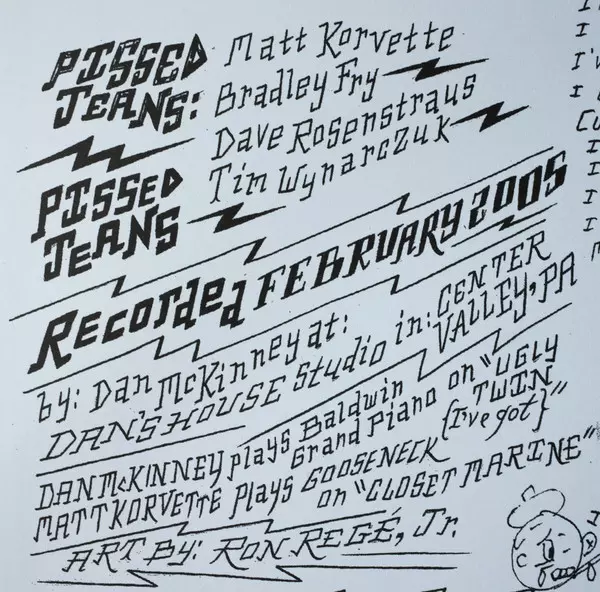 PISSED JEANS: Matt Korvette
Bradley Fry
Dave Rosenstraus
Tim Wynarczuk
PISSED JEANS
Recorded FEBRUARY 2005
by: Dan McKinney at:
DAN'S HOUSE Studio in: CENTER VALLEY, PA
DAN McKINNEY plays Baldwin Grand Piano on "UGLY TWIN {I've got}"
MATT KORVETTE Plays GOOSENECK on "CLOSET MARINE"
ART BY: RON REGÉ, Jr.
I
I'v
I
I
I
I